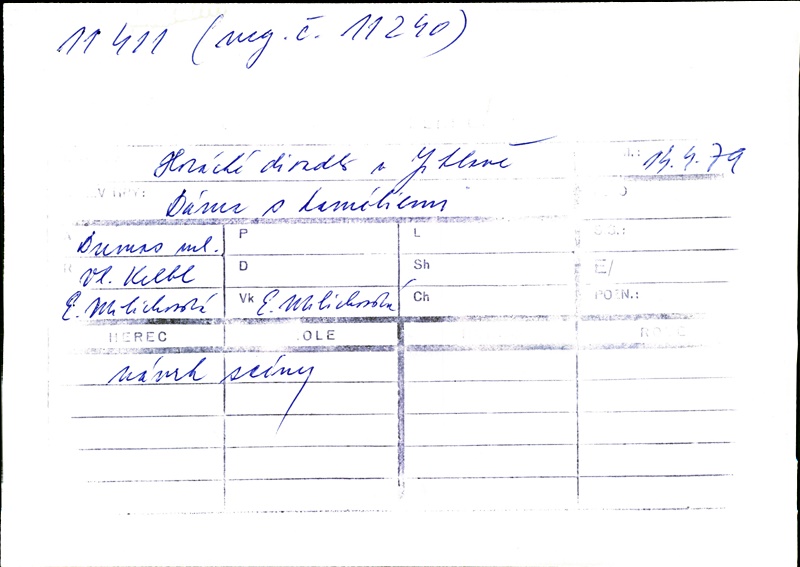 11411 (neg.č. 11240)
Horácké divadlo v Jihlavě 14.4.79
Dáma s kaméliemi
Dumas ml. P L
Vl. Kelbl D Sh E/
E. Milichovská Vk E. Milichovská Ch POZN.:
HEREC OLE
návrh scény